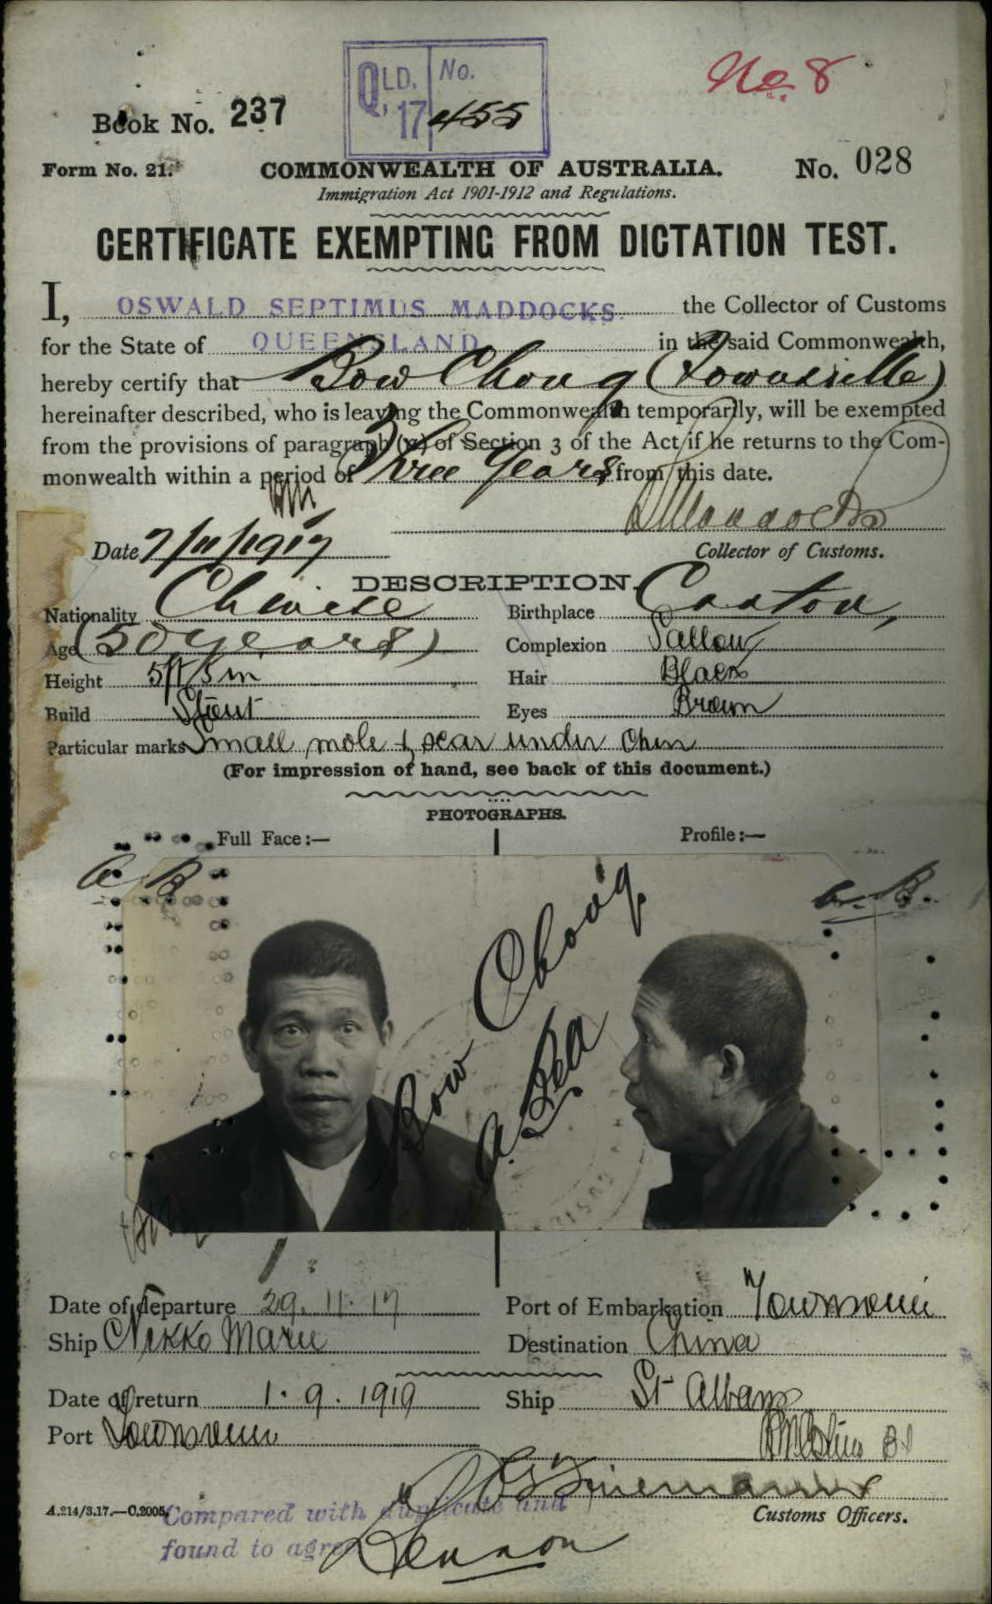 No. 8
QLD. No.
17 455
Book No. 237
Form No. 21.
COMMONWEALTH OF AUSTRALIA. No. 028
Immigration Act 1901-1912 and Regulations.
CERTIFICATE EXEMPTING FROM DICTATION TEST.
I, OSWALD SEPTIMUS MADDOCKS. the Collector of Customs
for the State of QUEENSLAND in the said Commonwealth,
hereby certify that Bow Chong (Townsville)
hereinafter described, who is leaving the Commonwealth temporarily, will be exempted
from the provisions of paragraph (a) of Section 3 of the Act if he returns to the Com-
monwealth within a period of Three Years from this date.
Date 7/11/1917 Collector of Customs.
DESCRIPTION.
Nationality Chinese Birthplace Canton,
Age (50 years) Complexion Sallow
Height 5ft 5in Hair Black
Build Stout Eyes Brown
Particular marks Small mole & scar under Chin
(For impression of hand, see back of this document.)
PHOTOGRAPHS.
Full Face:— Profile:—
A B
A. B.
Bow Chong
A Bea
Date of departure 29.11.17 Port of Embarkation Townsville
Ship Nikko Maru Destination China
Date of return 1.9.1919 Ship St Albans
Port Townsville
A.214/3.17.—C.2005. Customs Officers.
Compared with duplicate and
found to agree